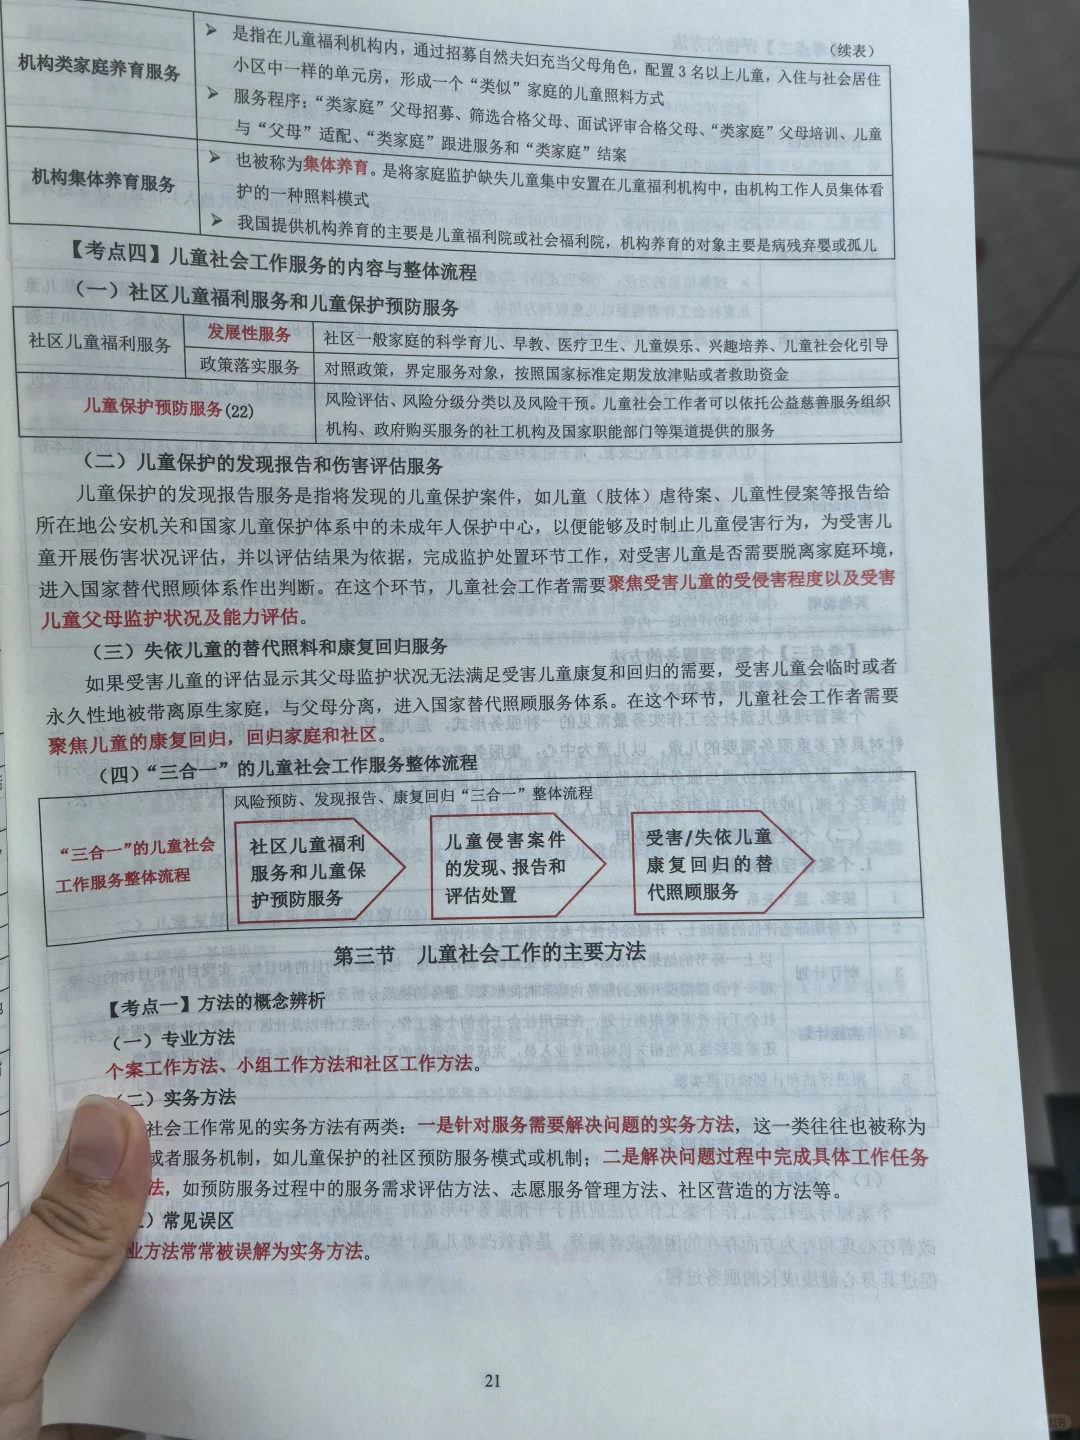 （续表）
机构类家庭养育服务
➢ 是指在儿童福利机构内，通过招募自然夫妇充当父母角色，配置 3 名以上儿童，入住与社会居住
小区中一样的单元房，形成一个“类似”家庭的儿童照料方式
➢ 服务程序：“类家庭”父母招募、筛选合格父母、面试评审合格父母、“类家庭”父母培训、儿童
与“父母”适配、“类家庭”跟进服务和“类家庭”结案
机构集体养育服务
➢ 也被称为集体养育。是将家庭监护缺失儿童集中安置在儿童福利机构中，由机构工作人员集体看
护的一种照料模式
➢ 我国提供机构养育的主要是儿童福利院或社会福利院，机构养育的对象主要是病残弃婴或孤儿
【考点四】儿童社会工作服务的内容与整体流程
（一）社区儿童福利服务和儿童保护预防服务
社区儿童福利服务
发展性服务
社区一般家庭的科学育儿、早教、医疗卫生、儿童娱乐、兴趣培养、儿童社会化引导
政策落实服务
对照政策，界定服务对象，按照国家标准定期发放津贴或者救助资金
儿童保护预防服务(22)
风险评估、风险分级分类以及风险干预。儿童社会工作者可以依托公益慈善服务组织
机构、政府购买服务的社工机构及国家职能部门等渠道提供的服务
（二）儿童保护的发现报告和伤害评估服务
儿童保护的发现报告服务是指将发现的儿童保护案件，如儿童（肢体）虐待案、儿童性侵案等报告给
所在地公安机关和国家儿童保护体系中的未成年人保护中心，以便能够及时制止儿童侵害行为，为受害儿
童开展伤害状况评估，并以评估结果为依据，完成监护处置环节工作，对受害儿童是否需要脱离家庭环境，
进入国家替代照顾体系作出判断。在这个环节，儿童社会工作者需要聚焦受害儿童的受侵害程度以及受害
儿童父母监护状况及能力评估。
（三）失依儿童的替代照料和康复回归服务
如果受害儿童的评估显示其父母监护状况无法满足受害儿童康复和回归的需要，受害儿童会临时或者
永久性地被带离原生家庭，与父母分离，进入国家替代照顾服务体系。在这个环节，儿童社会工作者需要
聚焦儿童的康复回归，回归家庭和社区。
（四）“三合一”的儿童社会工作服务整体流程
“三合一”的儿童社会
工作服务整体流程
风险预防、发现报告、康复回归“三合一”整体流程
社区儿童福利
服务和儿童保
护预防服务
儿童侵害案件
的发现、报告和
评估处置
受害/失依儿童
康复回归的替
代照顾服务
第三节 儿童社会工作的主要方法
【考点一】方法的概念辨析
（一）专业方法
个案工作方法、小组工作方法和社区工作方法。
二）实务方法
社会工作常见的实务方法有两类：一是针对服务需要解决问题的实务方法，这一类往往也被称为
或者服务机制，如儿童保护的社区预防服务模式或机制；二是解决问题过程中完成具体工作任务
法，如预防服务过程中的服务需求评估方法、志愿服务管理方法、社区营造的方法等。
）常见误区
业方法常常被误解为实务方法。
21